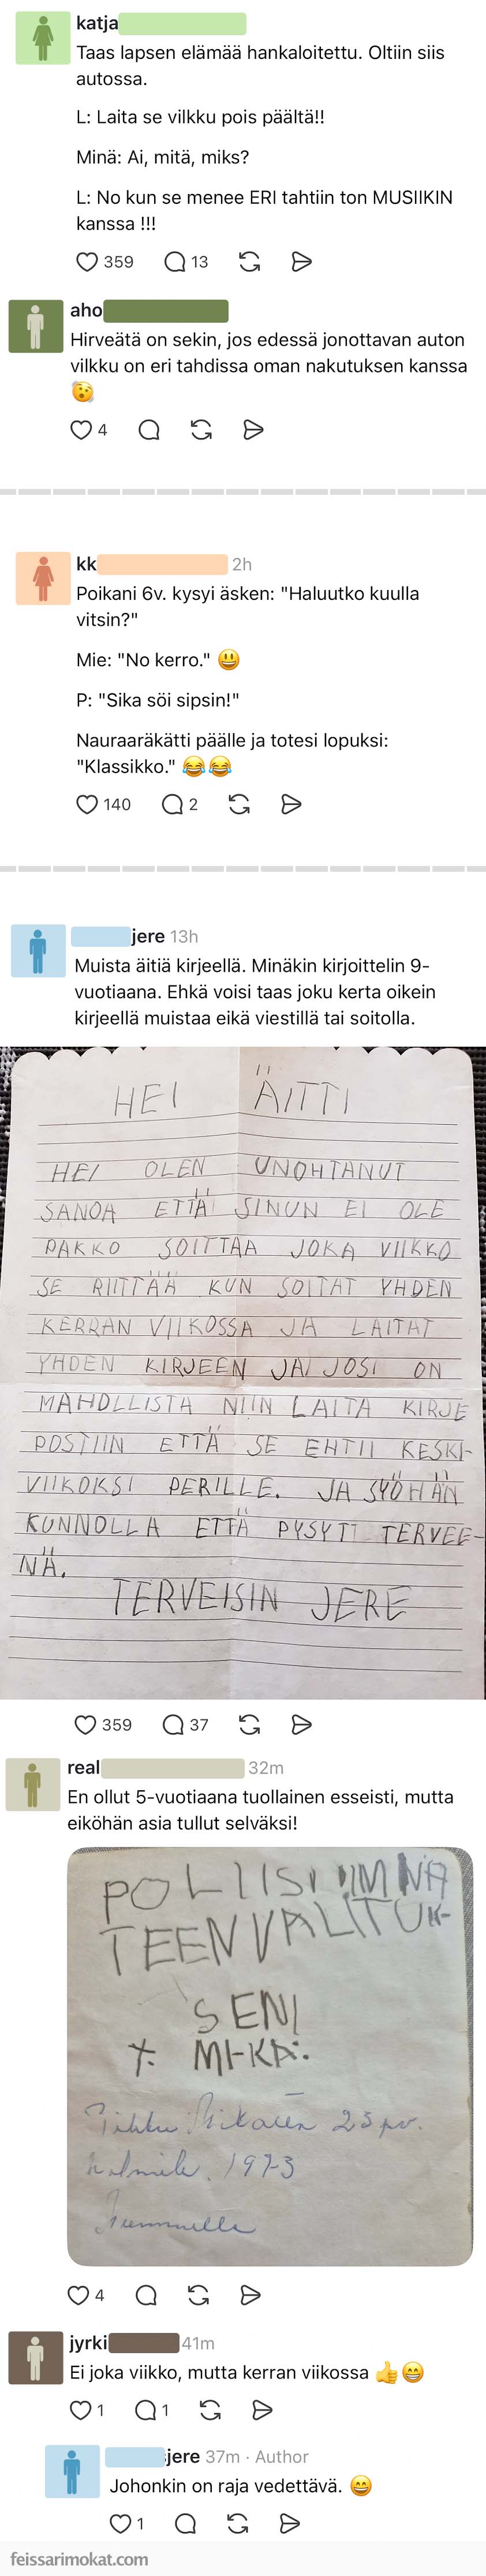 katja
Taas lapsen elämää hankaloitettu. Oltiin siis
autossa.
L: Laita se vilkku pois päältä!!
Minä: Ai, mitä, miks?
L: No kun se menee ERI tahtiin ton MUSIIKIN
kanssa !!!
359 13
aho
Hirveätä on sekin, jos edessä jonottavan auton
vilkku on eri tahdissa oman nakutuksen kanssa
🥳
4
kk 2h
Poikani 6v. kysyi äsken: "Haluutko kuulla
vitsin?"
Mie: "No kerro." 😃
P: "Sika söi sipsin!"
Nauraaräkätti päälle ja totesi lopuksi:
"Klassikko." 😂😂
140 2
jere 13h
Muista äitiä kirjeellä. Minäkin kirjoittelin 9-
vuotiaana. Ehkä voisi taas joku kerta oikein
kirjeellä muistaa eikä viestillä tai soitolla.
HEI ÄITTI
HEI OLEN UNOHTANUT
SANOA ETTÄ SINUN EI OLE
PAKKO SOITTAA JOKA VIIKKO
SE RIITTÄÄ KUN SOITAT YHDEN
KERRAN VIIKOSSA JA LAITAT
YHDEN KIRJEEN JA JOSI ON
MAHDOLLISTA NIIN LAITA KIRJE
POSTIIN ETTÄ SE EHTII KESKI-
VIIKOKSI PERILLE. JA SYÖHÄN
KUNNOLLA ETTÄ PYSYTT TERVEE-
NÄ.
TERVEISIN JERE
359 37
real 32m
En ollut 5-vuotiaana tuollainen esseisti, mutta
eiköhän asia tullut selväksi!
POLIISI MINÄ
TEEN VALITUK-
SENI
T. MI-KA.
23 pv.
1973
4
jyrki 41m
Ei joka viikko, mutta kerran viikossa 👍😁
1 1
jere 37m · Author
Johonkin on raja vedettävä. 😄
1
feissarimokat.com